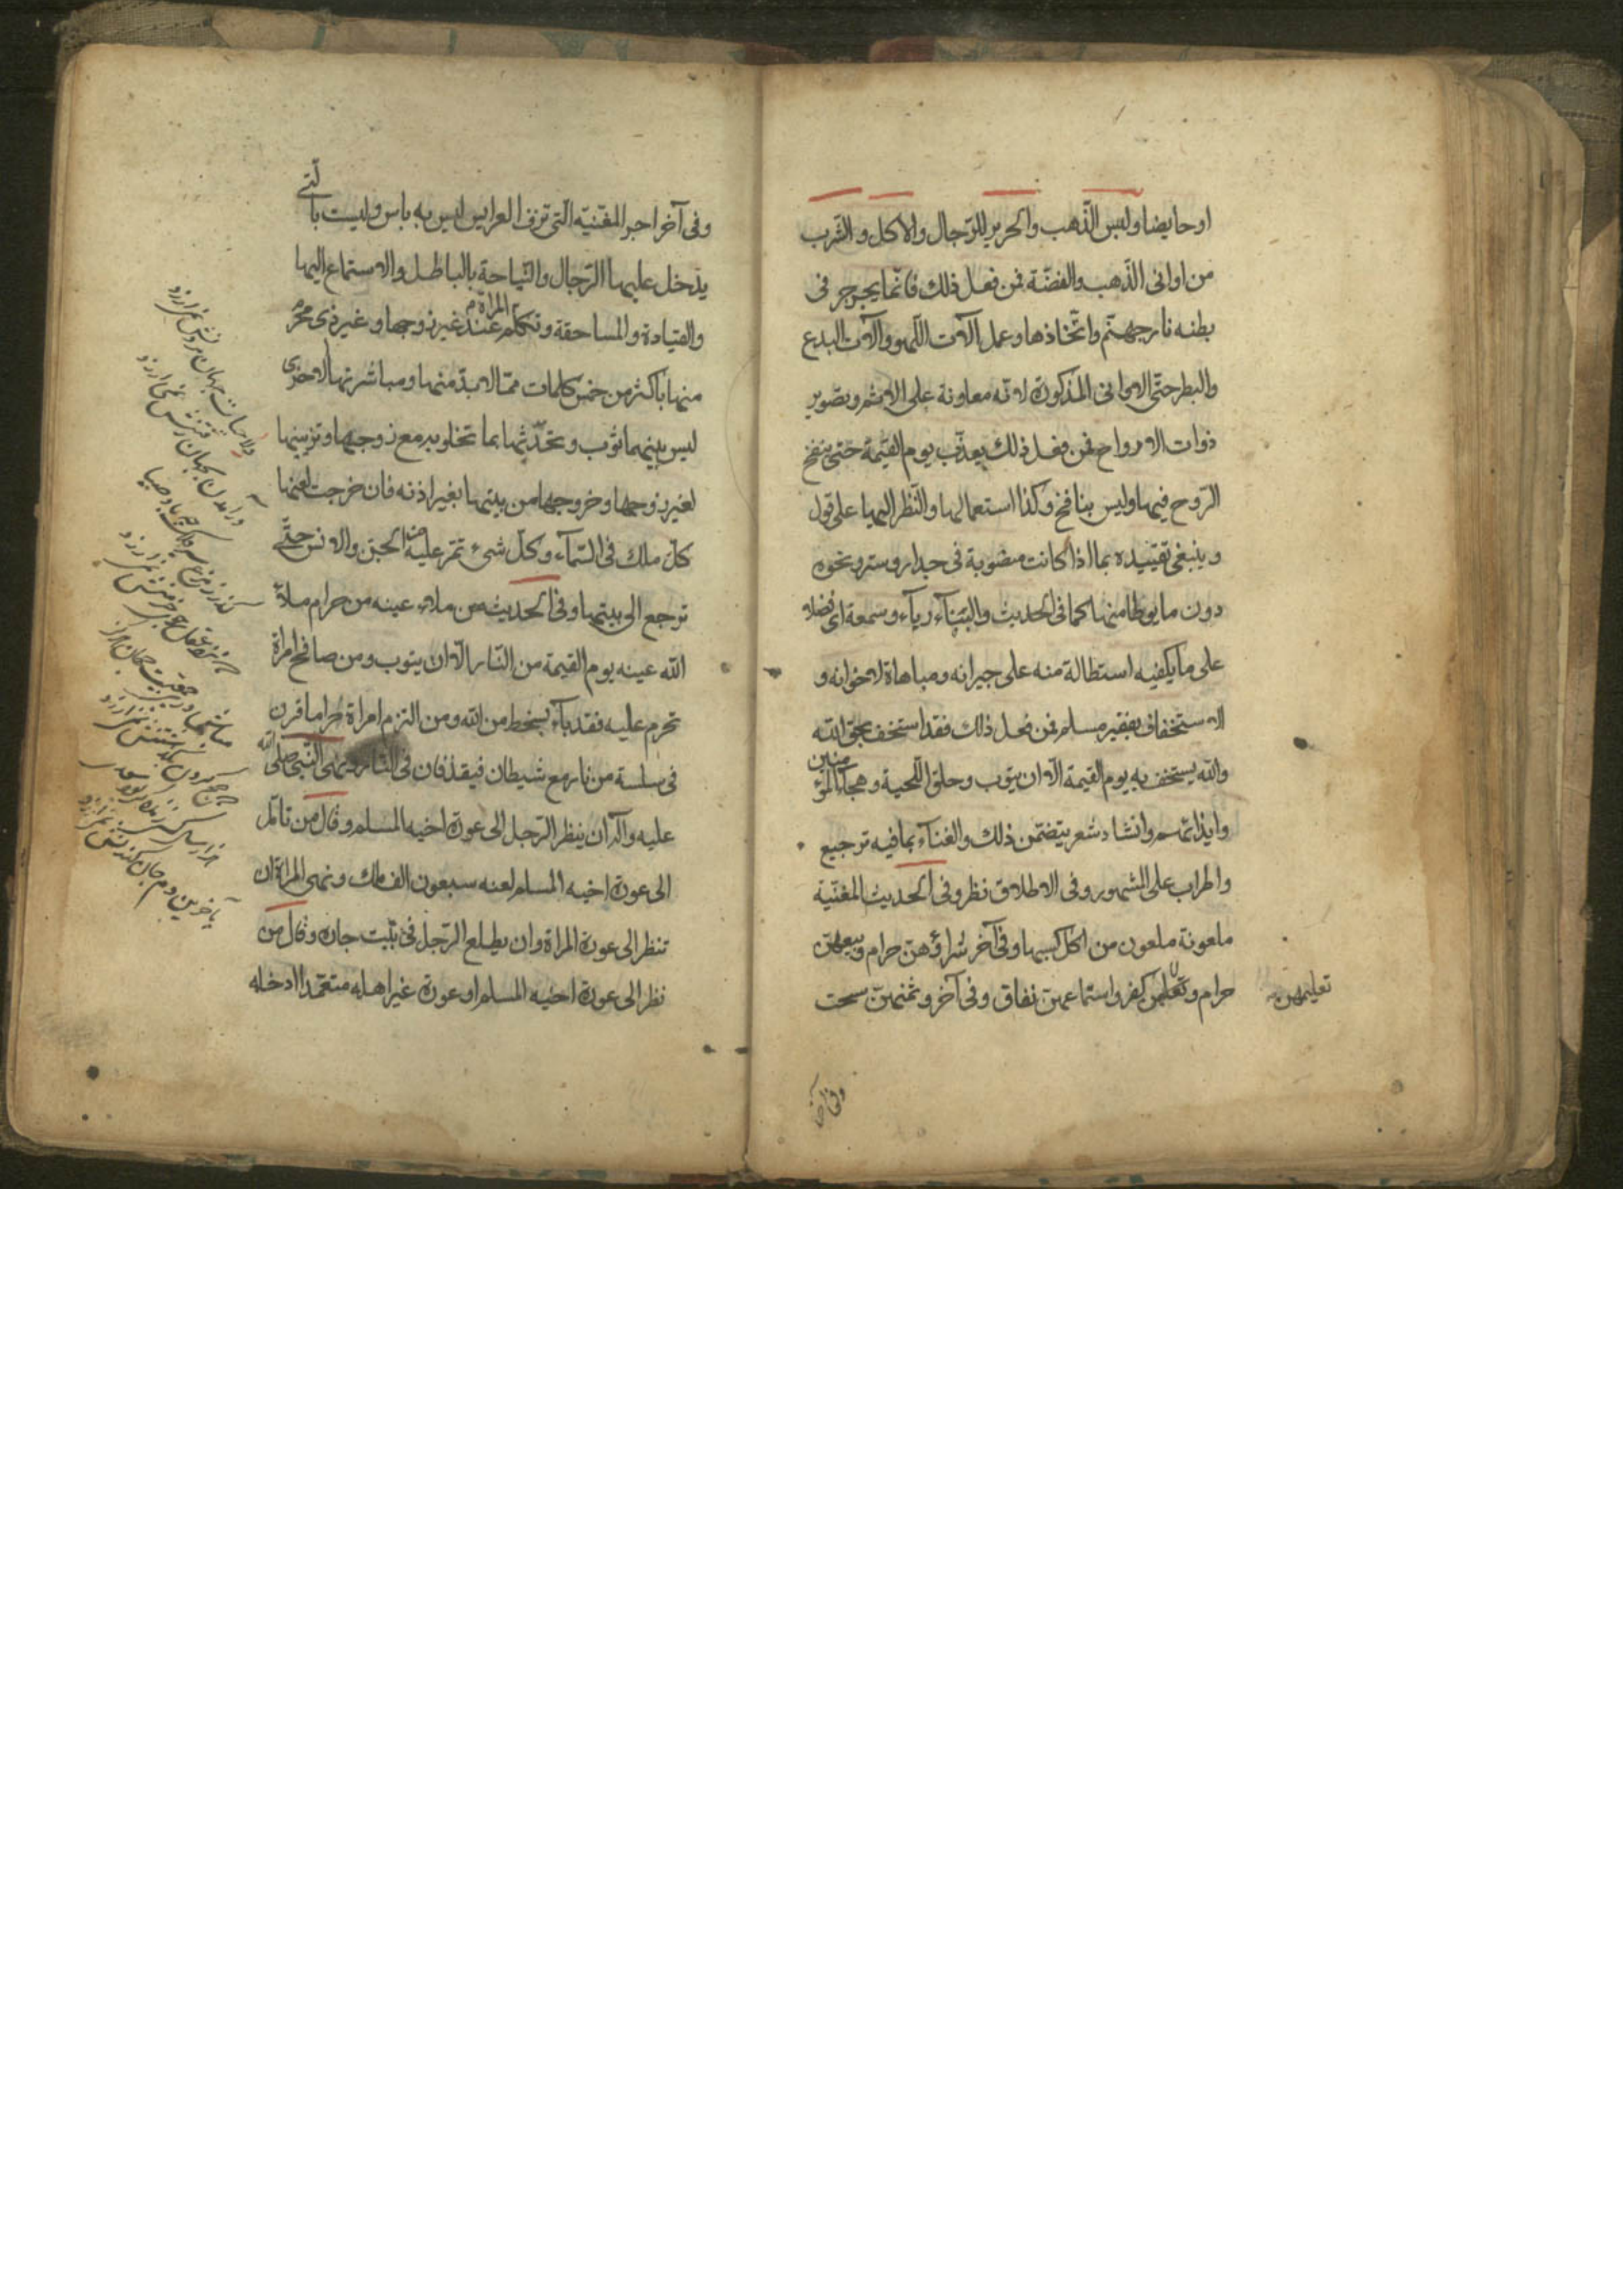 او حايضا ولبس الذّهب والحرير للرّجال والاكل والشّرب
من اوانى الذّهب والفضّة فمن فعل ذلك فانّما يجرجر فى
بطنه نار جهنّم واتّخاذها وعمل آلات اللّهو وآلات البدع
والبطر حتّى الاوانى المذكورة لانّه معاونة على الاثم وتصوير
ذوات الارواح فمن فعل ذلك يعذّب يوم القيمة حتى ينفخ
الرّوح فيها وليس بنافخ وكذا استعمالها والنّظر اليها على قول
وينبغى تقييده بما اذا كانت منصوبة فى جدار وستر ونحوه
دون ما يوطا منها كما فى الحديث والبنآء ريآء وسمعة اى فضلا
على ما يكفيه استطالة منه على جيرانه ومباهاة لاخوانه و
الاستخفاف بفقير مسلم فمن فعل ذلك فقد استخف بحق الله
والله يستخف به يوم القيمة الّا ان يتوب وحلق اللّحية وهجآء المؤمنين
وايذائهم وانشاد شعر يتضمّن ذلك والغنآء بما فيه ترجيع
واطراب على المشهور وفى الاطلاق نظر وفى الحديث المغنّية
ملعونة ملعون من اكل كسبها وفى آخر شراؤهن حرام وبيعهن
حرام وتعلمهن كفر واستماعهن نفاق وفى آخر وثمنهن سحت
تعليمهن
وفى آخر
وفى آخر اجر المغنّيه الّتى تزف العرايس ليس به باس وليست بالّتى
يدخل عليها الرّجال والنّياحة بالباطل والاستماع اليها
والقيادة والمساحقة وتكلم المراة عند غير زوجها وغير ذى محرم
منها باكثر من خمس كلمات ممّا لا بدّ منها ومباشرتها الاخرى
ليس بينهما ثوب وتحدّثها بما تخلو به مع زوجها وتزيينها
لغير زوجها وخروجها من بيتها بغير اذنه فان خرجت لعنها
كلّ ملك فى السّمآء وكلّ شىء تمرّ عليه من الجنّ والانس حتّى
ترجع الى بيتها وفى الحديث من ملاء عينه من حرام ملاء
الله عينه يوم القيمة من النّار الّا ان يتوب ومن صافح امراة
تحرم عليه فقد بآء بسخط من الله ومن التزم امراة حراما قرن
فى سلسة من نار مع شيطان فيقذفان فى النّار ونهى النّبى صلى الله
عليه وآله ان ينظر الرّجل الى عورة اخيه المسلم وقال من تامّل
الى عورة اخيه المسلم لعنه سبعون الف ملك ونهى المراة ان
تنظر الى عورة المراة وان يطلع الرّجل فى بيت جاره وقال من
نظر الى عورة اخيه المسلم او عورة غير اهله متعمّدا ادخله